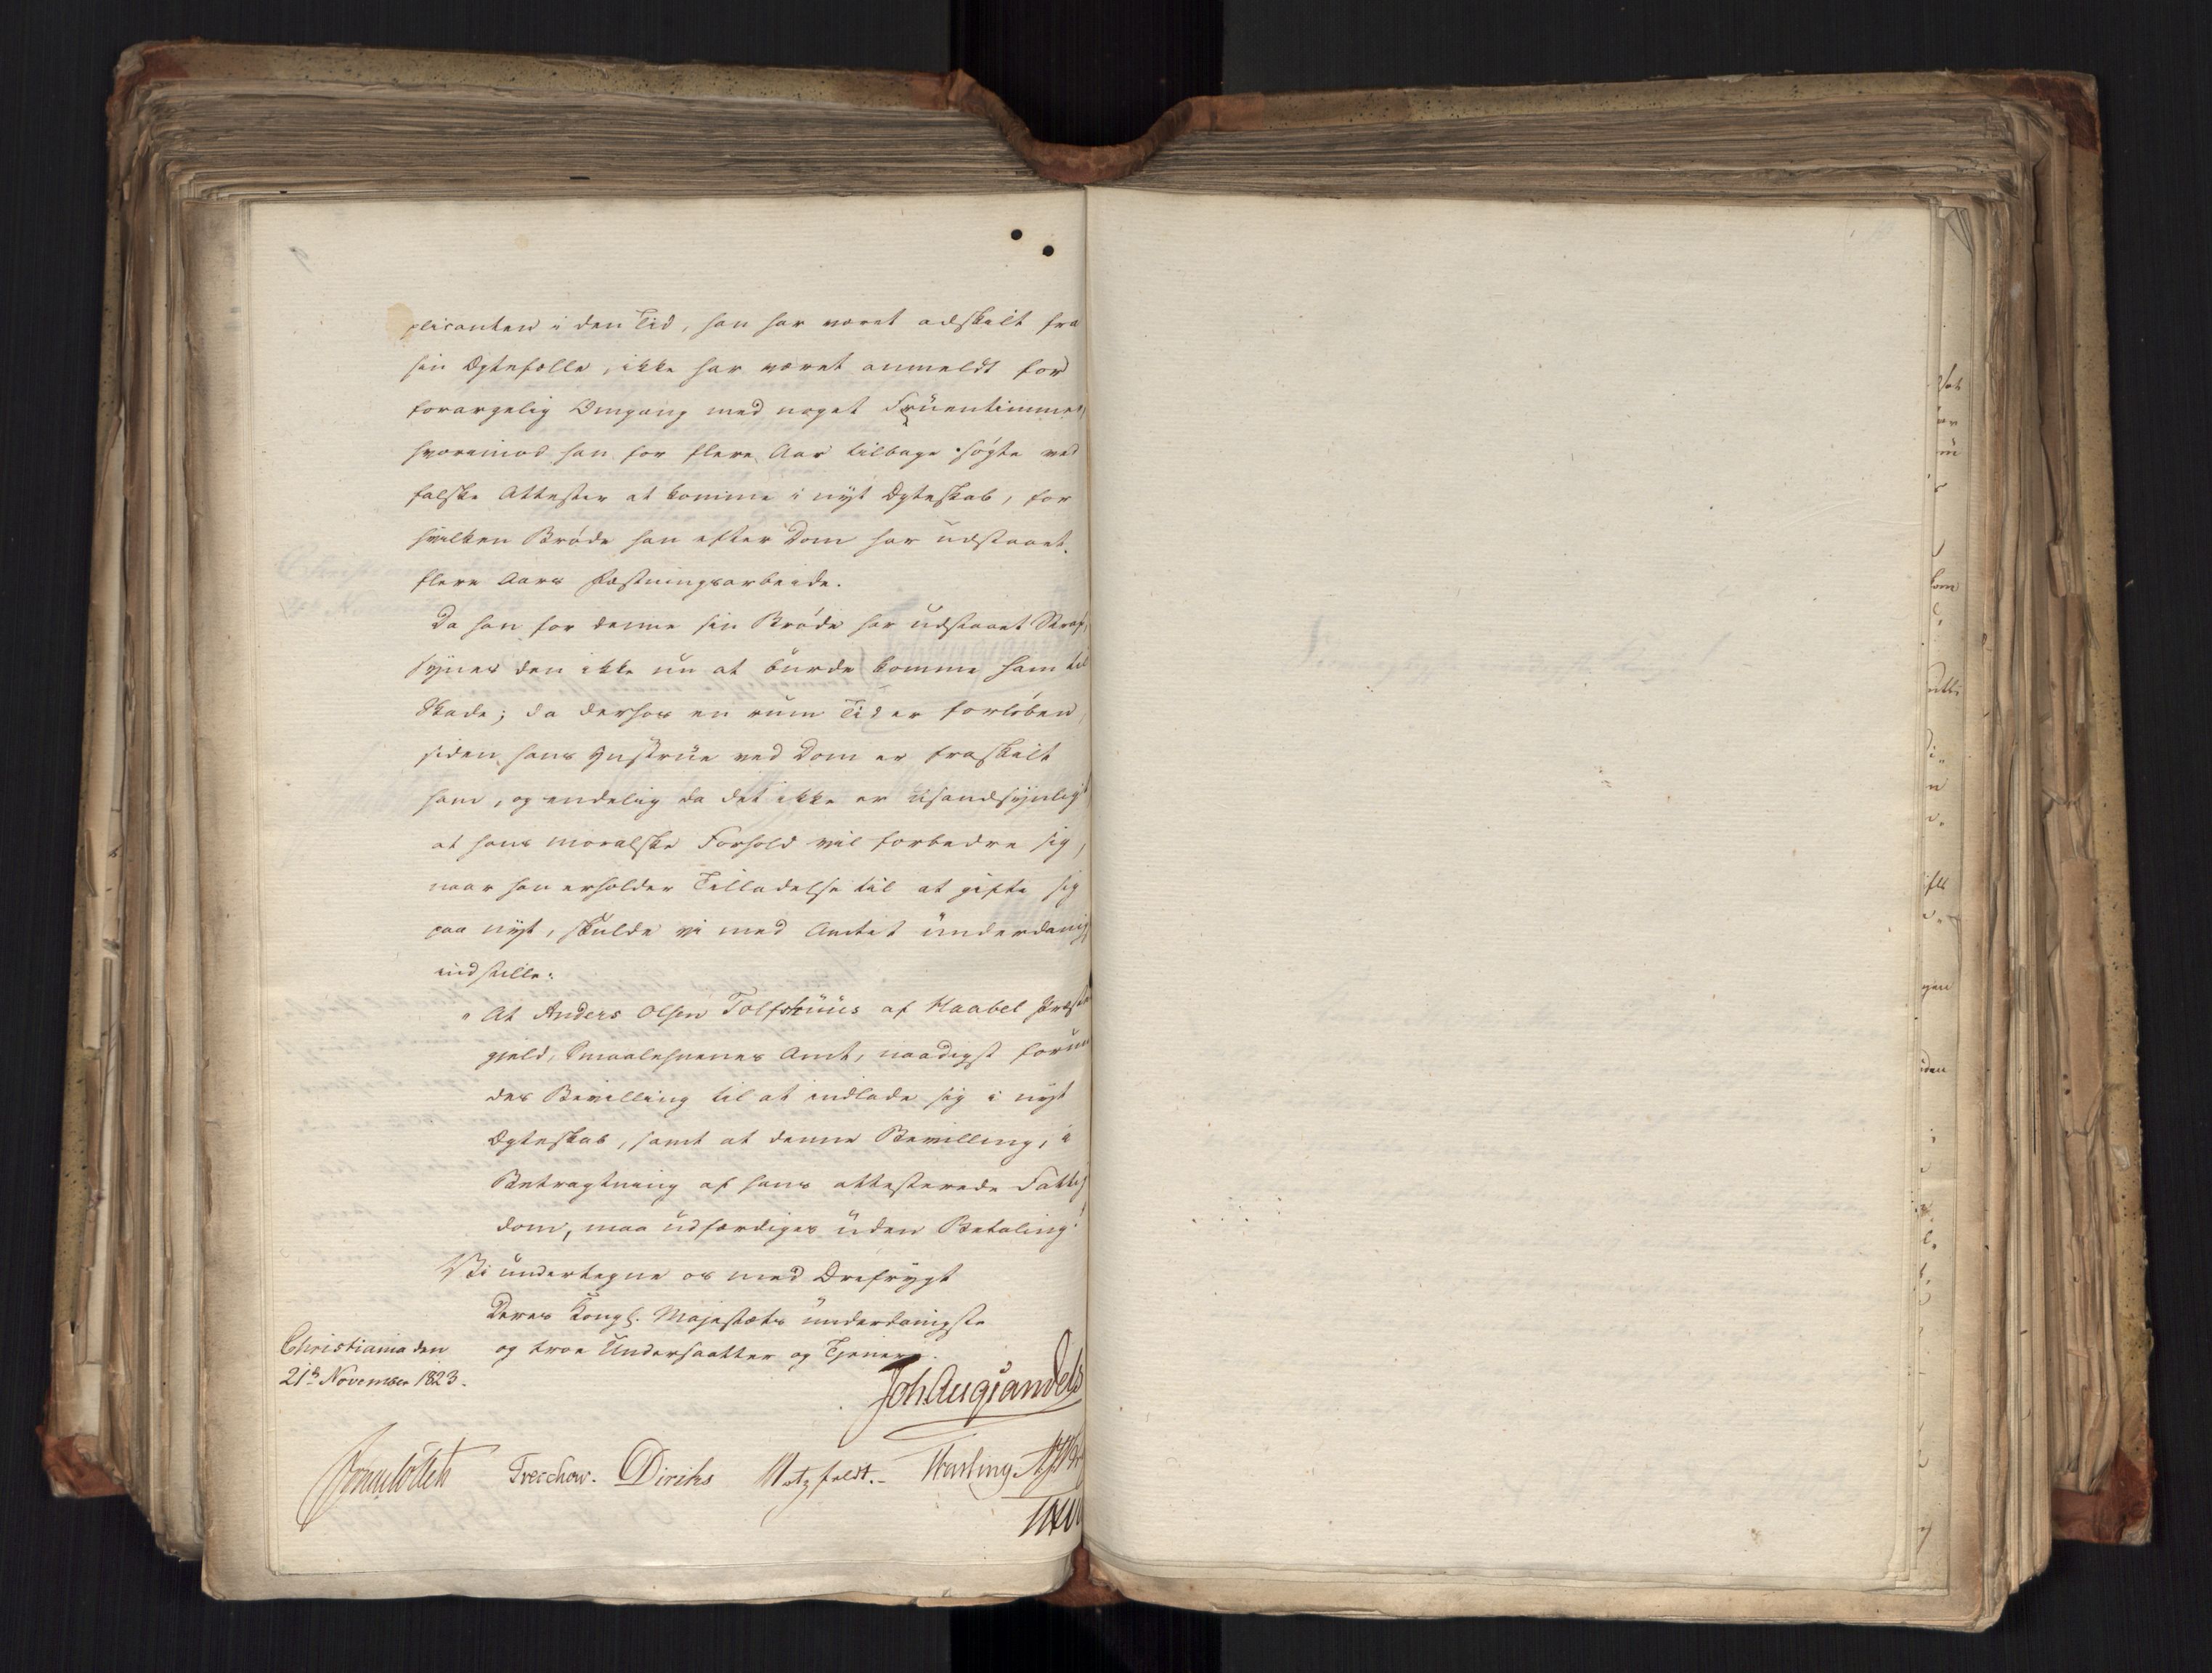 plicanten i den Tid, han har været adskilt fra
sin Ægtefælle, ikke har været anmeldt for
forargelig Omgang med noget Fruentimmer,
hvorimod han for flere Aar tilbage søgte ved
falske Attester at komme i nyt Ægteskab, for
hvilken Brøde han efter Dom har udstaaet
flere Aars Fæstningsarbeide.
Da han for denne sin Brøde har udstaaet Straf,
synes den ikke nu at burde komme ham til
Skade; da derhos en rum Tid er forløben,
siden hans Hustrue ved Dom er fraskilt
ham, og endelig da det ikke er usandsynligt
at hans moralske Forhold vil forbedre sig,
naar han erholder Tilladelse til at gifte sig
paa nyt, skulde vi med Amtet underdanigst
indstille:
"At Anders Olsen Tolfshuus af Haabel Præste
gjeld, Smaalehnenes Amt, naadigst forun
des Bevilling til at indlade sig i nyt
Ægteskab, samt at denne Bevilling, i
Betragtning af hans attesterede Fattig
dom, maa udfærdiges uden Betaling."
Vi undertegne os med Ærefrygt
Deres Kongl. Majestæts underdanigste
og troe Undersaatter og Tjenere.
Christiania den
21de November 1823.
Joh. Aug: Sandels
Sommelden
Treschow. Diriks Motzfeldt. Fasting.